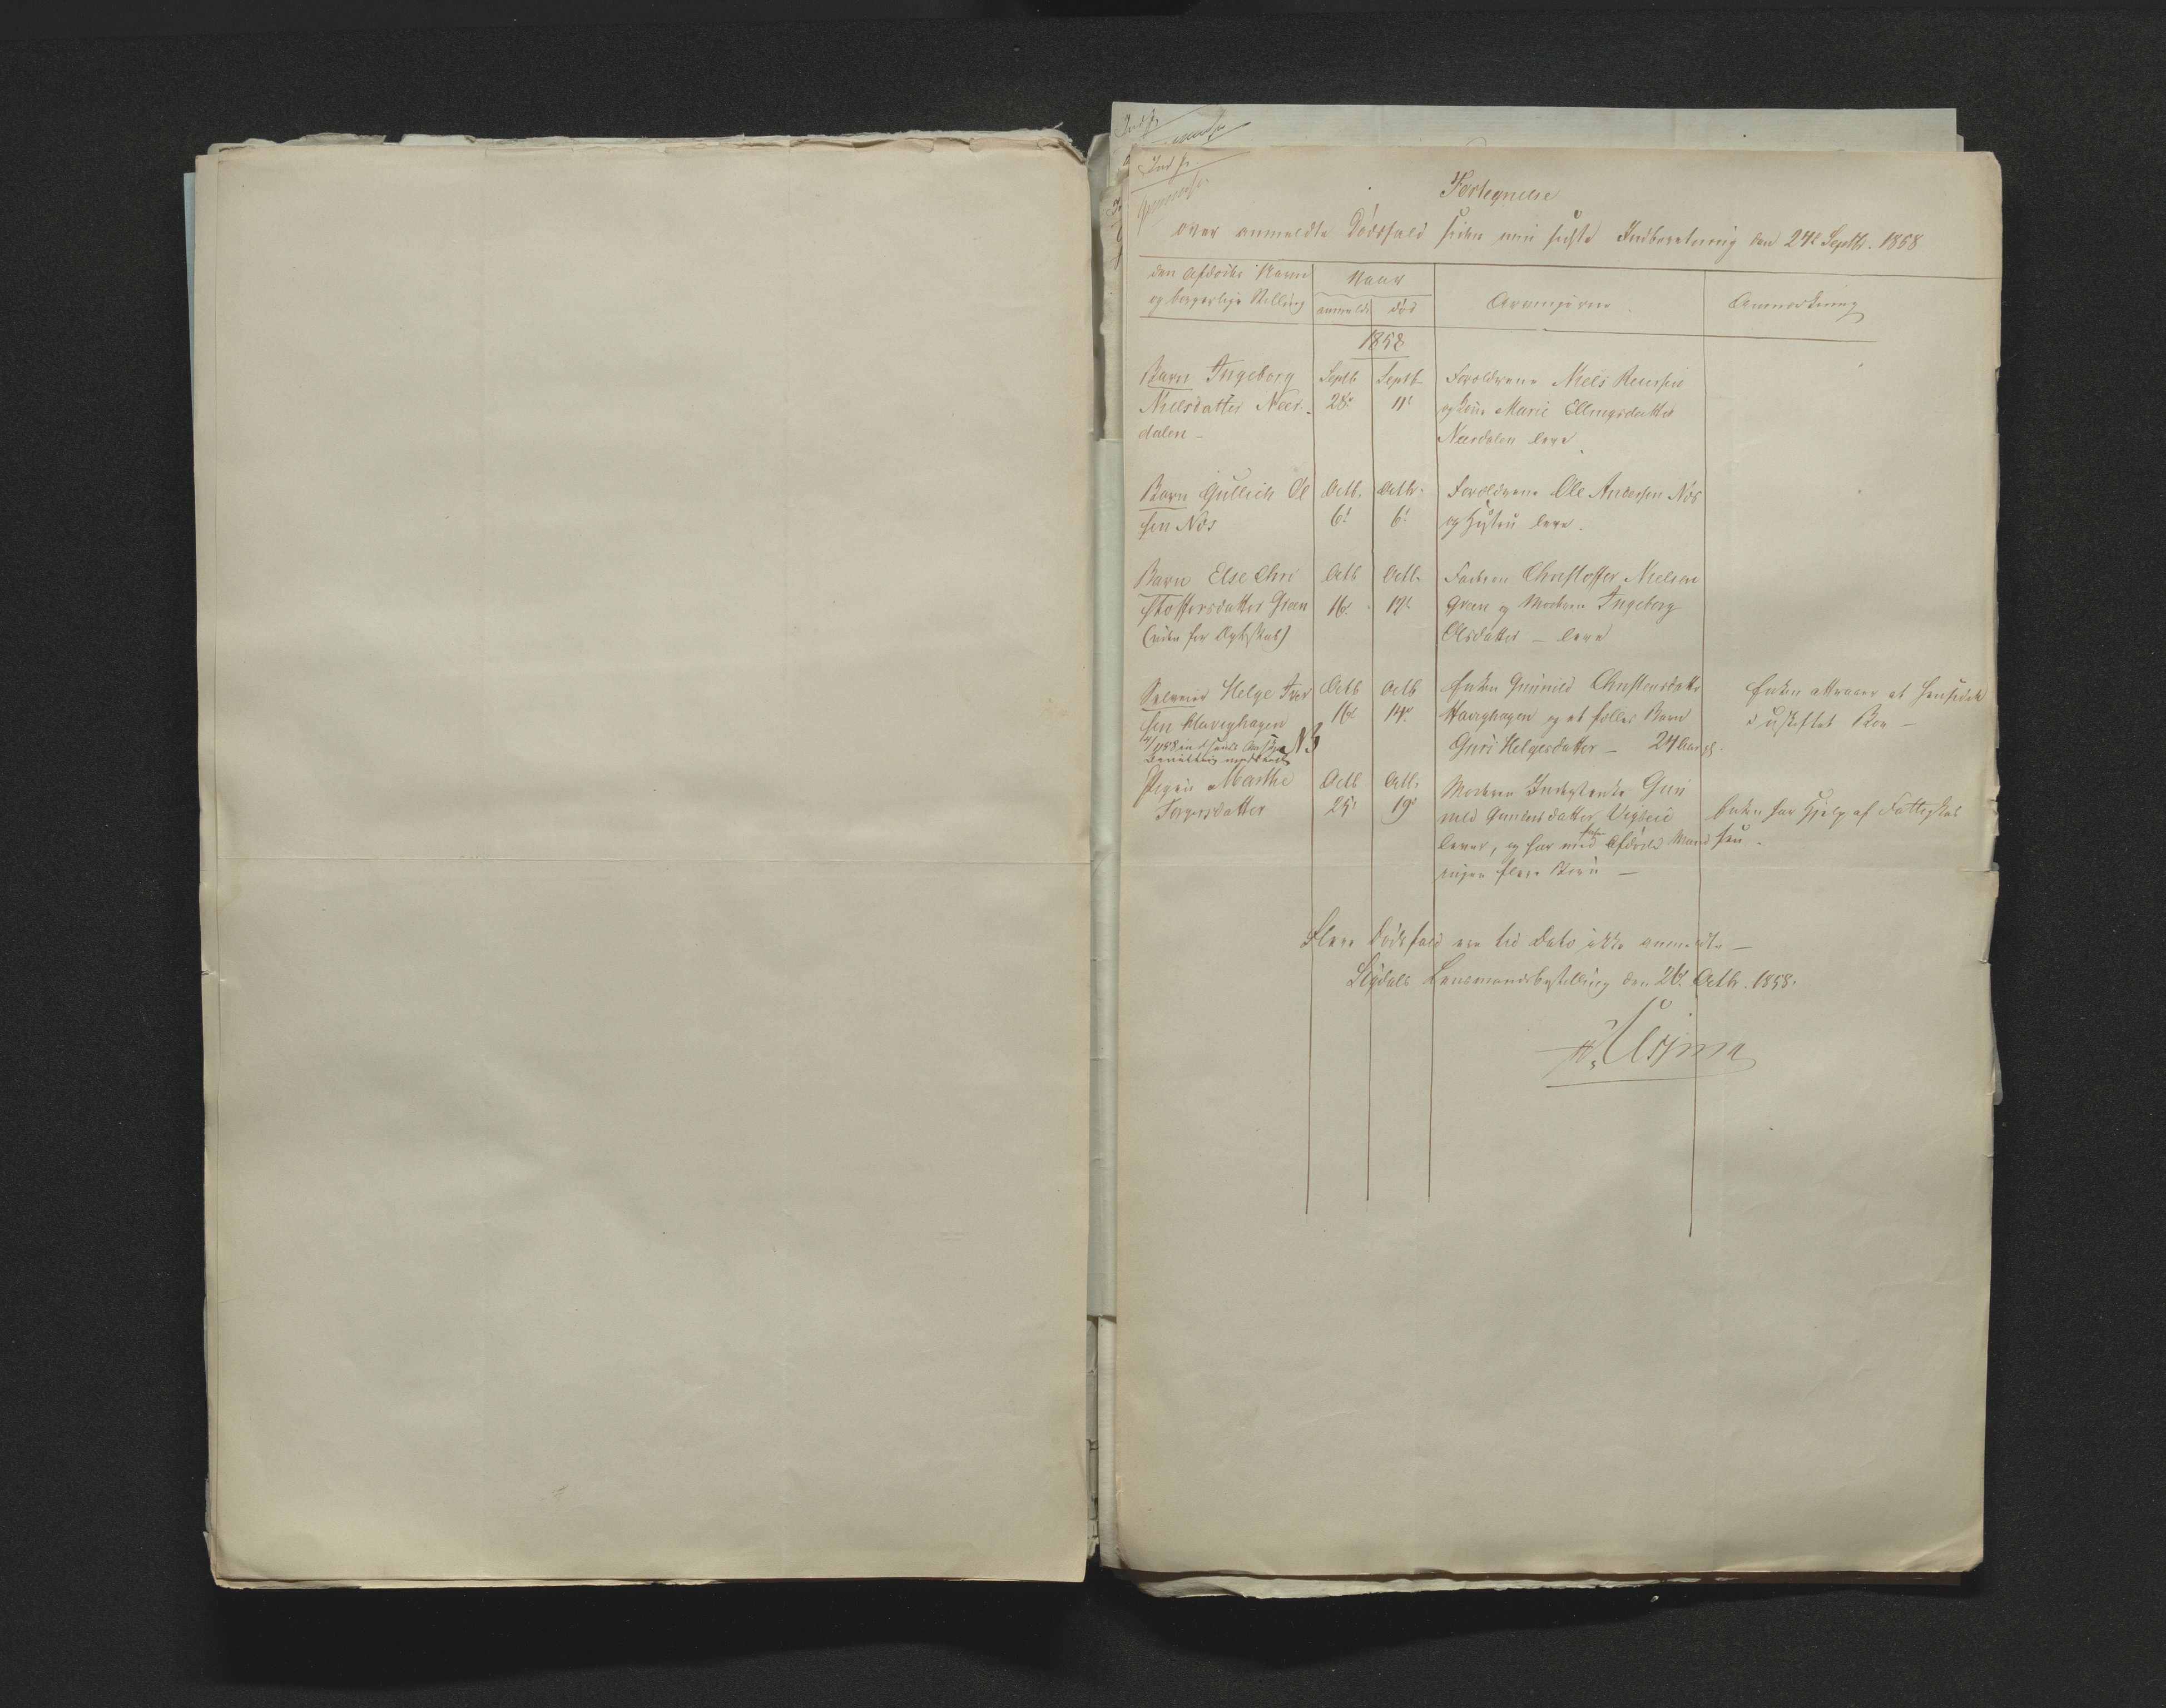 Indf.
Indf.
Fortegnelse
over anmeldte Dödsfald siden min sidste Indberetning den 24de Septbr. 1858
den Afdödes Navn
og borgerlige Stilling
Naar
anmeldt
död
Arvingerne
Anmerkning
1858
Barn Ingeborg
Nielsdatter Neer-
dalen -
Septb
28de
Septb
11te
Forældrene Niels
og Kone Marie Ellingsdatter
Neerdalen leve.
Barn Gullich Ol
sen Næs
Octb.
6te
Octbr.
6te
Forældrene Ole Andersen Næs
og Hustru leve.
Barn Else Chri
stoffersdatter Green
(uden for Ægteskab)
Octb
16de
Octb.
12te
Faderen Christoffer Nielsen
Green og Moderen Ingeborg
Olsdatter - leve
Selveier Helge Iver
sen Haughagen
Octb
16de
Octb
14de
Enken Gunnild Christensdatter
Haughagen og et fælles Barn
Guri Helgesdatter - 24 Aar gl.
Enken attraaer at hensidde
i uskiftet Boe -
Pigen Marthe
Torgersdatter
Octb
25de
Octb.
19de
Moderen Inderstenke Gun
nild Gundersdatter
lever, og har med Afdöde Mand
ingen flere Börn -
Enken har Hjelp af Fattigkas
sen.
Flere Dödsfald ere til Dato ikke anmeldte -
Sigdals Lensmandsbestilling den 26de Octbr. 1858.